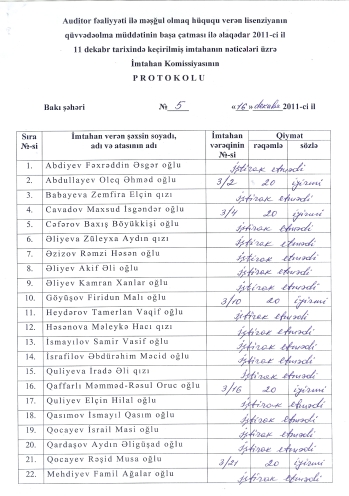 Auditor fəaliyyəti ilə məşğul olmaq hüququ verən lisenziyanın
qüvvədəolma müddətinin başa çatması ilə əlaqədar 2011-ci il
11 dekabr tarixində keçirilmiş imtahanın nəticələri üzrə
İmtahan Komissiyasının
P R O T O K O L U
Bakı şəhəri № 5 «16» dekabr 2011-ci il
Sıra №-si İmtahan verən şəxsin soyadı, adı və atasının adı İmtahan vərəqinin №-si Qiymət rəqəmlə sözlə
1. Abdiyev Fəxrəddin Əsgər oğlu iştirak etmədi
2. Abdullayev Oleq Əhməd oğlu 3/2 20 iyirmi
3. Babayeva Zemfira Elçin qızı iştirak etmədi
4. Cavadov Maxsud İsgəndər oğlu 3/4 20 iyirmi
5. Cəfərov Baxış Böyükkişi oğlu iştirak etmədi
6. Əliyeva Züleyxa Aydın qızı iştirak etmədi
7. Əzizov Rəmzi Həsən oğlu iştirak etmədi
8. Əliyev Akif Əli oğlu iştirak etmədi
9. Əliyev Kamran Xanlar oğlu iştirak etmədi
10. Göyüşov Firidun Malı oğlu 3/10 20 iyirmi
11. Heydərov Tamerlan Vaqif oğlu iştirak etmədi
12. Həsənova Məleykə Hacı qızı iştirak etmədi
13. İsmayılov Samir Vasif oğlu iştirak etmədi
14. İsrafilov Əbdürəhim Məcid oğlu iştirak etmədi
15. Quliyeva İradə Əli qızı iştirak etmədi
16. Qaffarlı Məmməd-Rəsul Oruc oğlu 3/16 20 iyirmi
17. Quliyev Elçin Hilal oğlu iştirak etmədi
18. Qasımov İsmayıl Qasım oğlu iştirak etmədi
19. Qocayev İsrail Masi oğlu iştirak etmədi
20. Qardaşov Aydın Əligüşad oğlu iştirak etmədi
21. Qocayev Rəşid Musa oğlu 3/21 20 iyirmi
22. Mehdiyev Famil Ağalar oğlu iştirak etmədi